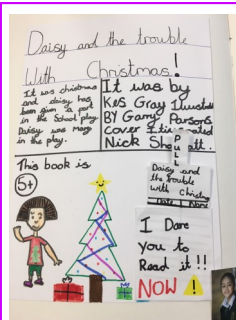 Daisy and the trouble
With Christmas!
It was christmas
and daisy has
been given a part
in the School play.
Daisy was Mary
in the play.
It was by
Kes Gray Illustrated
BY Garry Parsons
cover
Nick
This book is
5+
PULL
Daisy and
the trouble
with
I Dare
you to
Read it!!
NOW